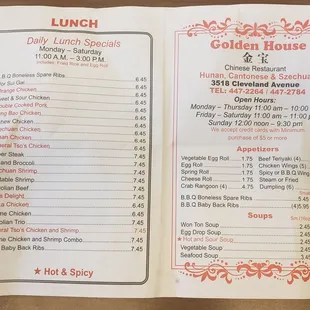 LUNCH
Daily Lunch Specials
Monday – Saturday
11:00 A.M. – 3:00 P.M.
Includes: Fried Rice and Egg Roll
B.B.Q Boneless Spare Ribs 6.45
Gai Pan 6.45
Orange Chicken 6.45
Sweet & Sour Chicken 6.45
Double Cooked Pork 6.45
Chicken 6.45
Chicken 6.45
Chicken 6.45
Chicken 6.45
Tso's Chicken 6.45
Pepper Steak 7.45
and Broccoli 7.45
Szechuan Shrimp 7.45
Vegetable Shrimp 7.45
Mongolian Beef 7.45
Delight 7.45
Chicken 7.45
Chicken 7.45
Trio 7.45
General Tso's Chicken and Shrimp 7.45
Chicken and Shrimp Combo 7.45
Baby Back Ribs 7.45
★ Hot & Spicy
Golden House
金宝
Chinese Restaurant
Hunan, Cantonese & Szechuan
3518 Cleveland Avenue
TEL: 447-2264 / 447-2784
Open Hours:
Monday - Thursday 11:00 am - 10:00
Friday - Saturday 11:00 am - 11:00
Sunday 12:00 noon - 9:30 pm
We accept credit cards with Minimum
purchase of $5 or more
Appetizers
Vegetable Egg Roll 1.75
Egg Roll 1.75
Spring Roll 1.75
Cheese Roll 1.75
Crab Rangoon (4) 3.75
Beef Teriyaki (4)
Chicken Wings (5)
Spicy or B.B.Q Wing
Steam or Fried
Dumpling (6)
B.B.Q Boneless Spare Ribs 5.95
B.B.Q Baby Back Ribs (4)5.95
Soups
Won Ton Soup 2.45
Egg Drop Soup 2.45
★Hot and Sour Soup 2.45
Vegetable Soup 2.45
Seafood Soup 2.45